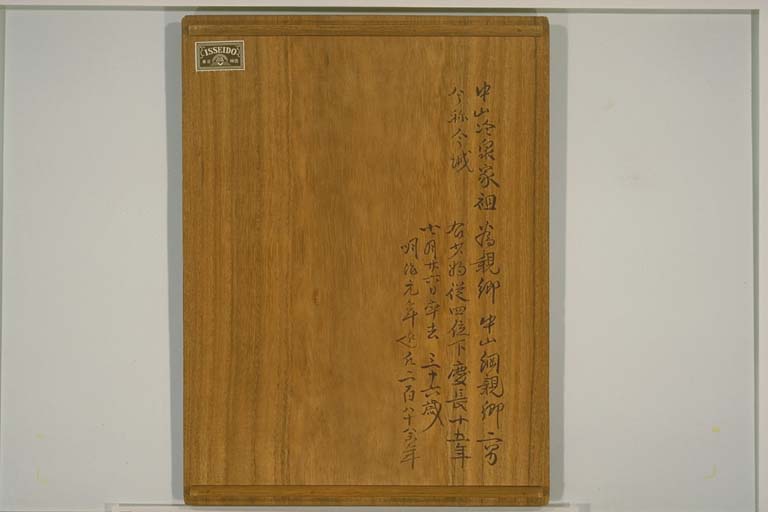 ISSEIDO
中山冷泉家祖 為親卿 中山綱親卿二男
今称今城
右少将従四位下慶長十五年
七月廿六日卒去 三十六歳
明治元年迄凡二百八十八年